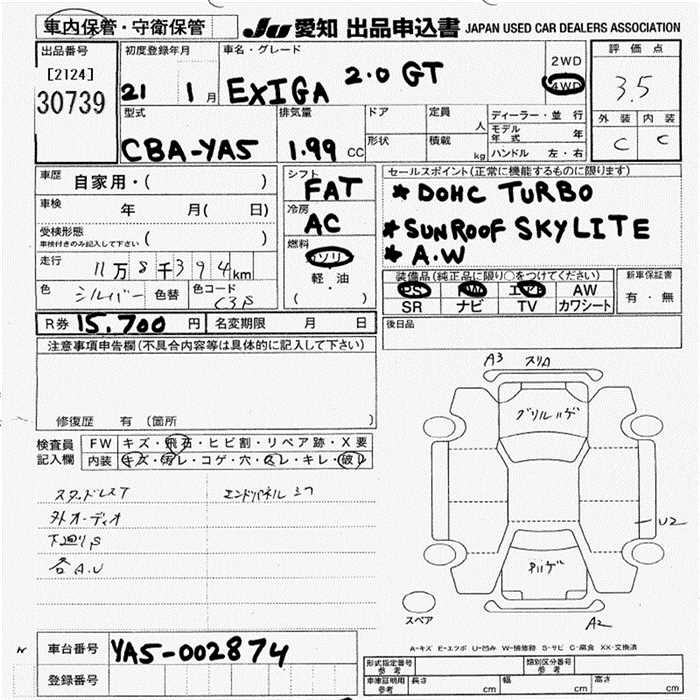 車内保管・守衛保管 JU 愛知 出品申込書 JAPAN USED CAR DEALERS ASSOCIATION
出品番号 初度登録年月 車名・グレード 2WD 評価点
[2124] 21 1月 EXIGA 2.0 GT 4WD 3.5
30739 型式 排気量 ドア 定員 人 ディーラー・並行 外装 内装
CBA-YA5 1.99 CC 形状 積載 kg モデル年式 年 C C
ハンドル 左・右
車歴 自家用・( ) シフト FAT セールスポイント(正常に機能するものに限ります)
車検 年 月( 日) 冷房 AC * DOHC TURBO
受検形態 車検付きのみ記入して下さい ( ) 燃料 ガソリン * SUNROOF SKYLITE
走行 11万8千394km 軽・油 * A.W
色 シルバー 色替 色コード ( ) 装備品(純正品に限り○をつけてください) 新車保証書
PS PW エアB AW 有・無
SR ナビ TV カワシート
R券 15,700 円 名変期限 月 日 後日品
注意事項申告欄(不具合内容等は具体的に記入して下さい)
修復歴 有 (箇所 )
A3 スリA
グリルハゲ
検査員記入欄 FW キズ・飛石・ヒビ割・リペア跡・X要
内装 キズ・汚レ・コゲ・穴・スレ・キレ・破レ
スタッドレスT エンドパネルシワ
外オーディオ U2
下廻りS
A2
スペア
A-キズ E-エクボ U-凹み W-補修跡 S-サビ C-腐食 XX-交換済
車台番号 YA5-002874
登録番号
形式指定番号 参考 類別区分番号 参考
車庫証明用 参考 長さ cm 幅 cm 高さ cm